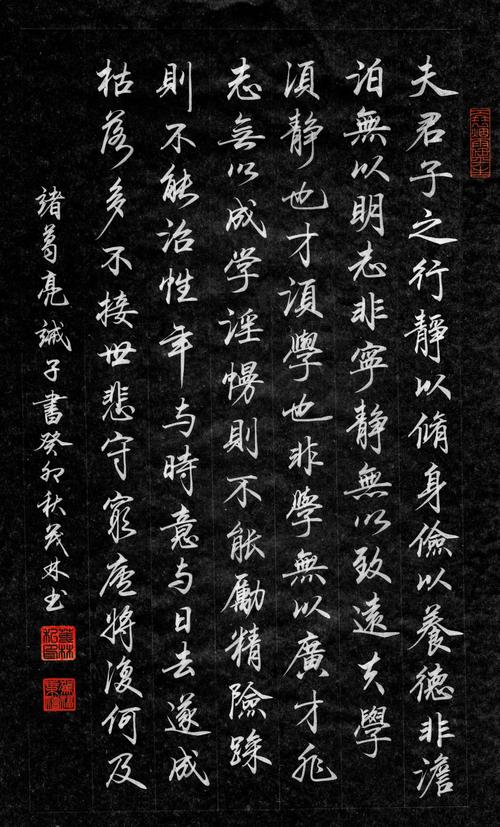 夫君子之行靜以脩身儉以養德非澹
泊無以明志非寧靜無以致遠夫學
須靜也才須學也非學無以廣才非
志無以成学淫慢則不能勵精險躁
則不能治性年与時意与日去遂成
枯落多不接世悲守窮廬將復何及
諸葛亮誡子書癸卯秋茂林书